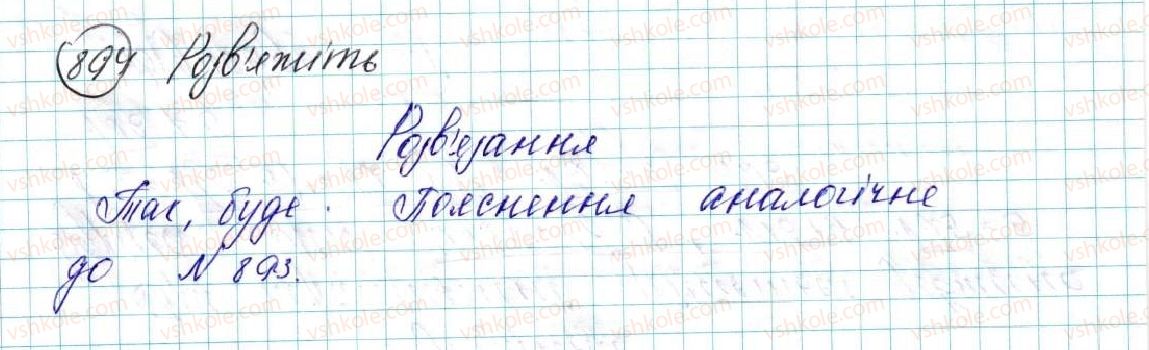 894 Розв'яжіть
Розв'язання
Так, буде. Пояснення аналогічне
до N 893.